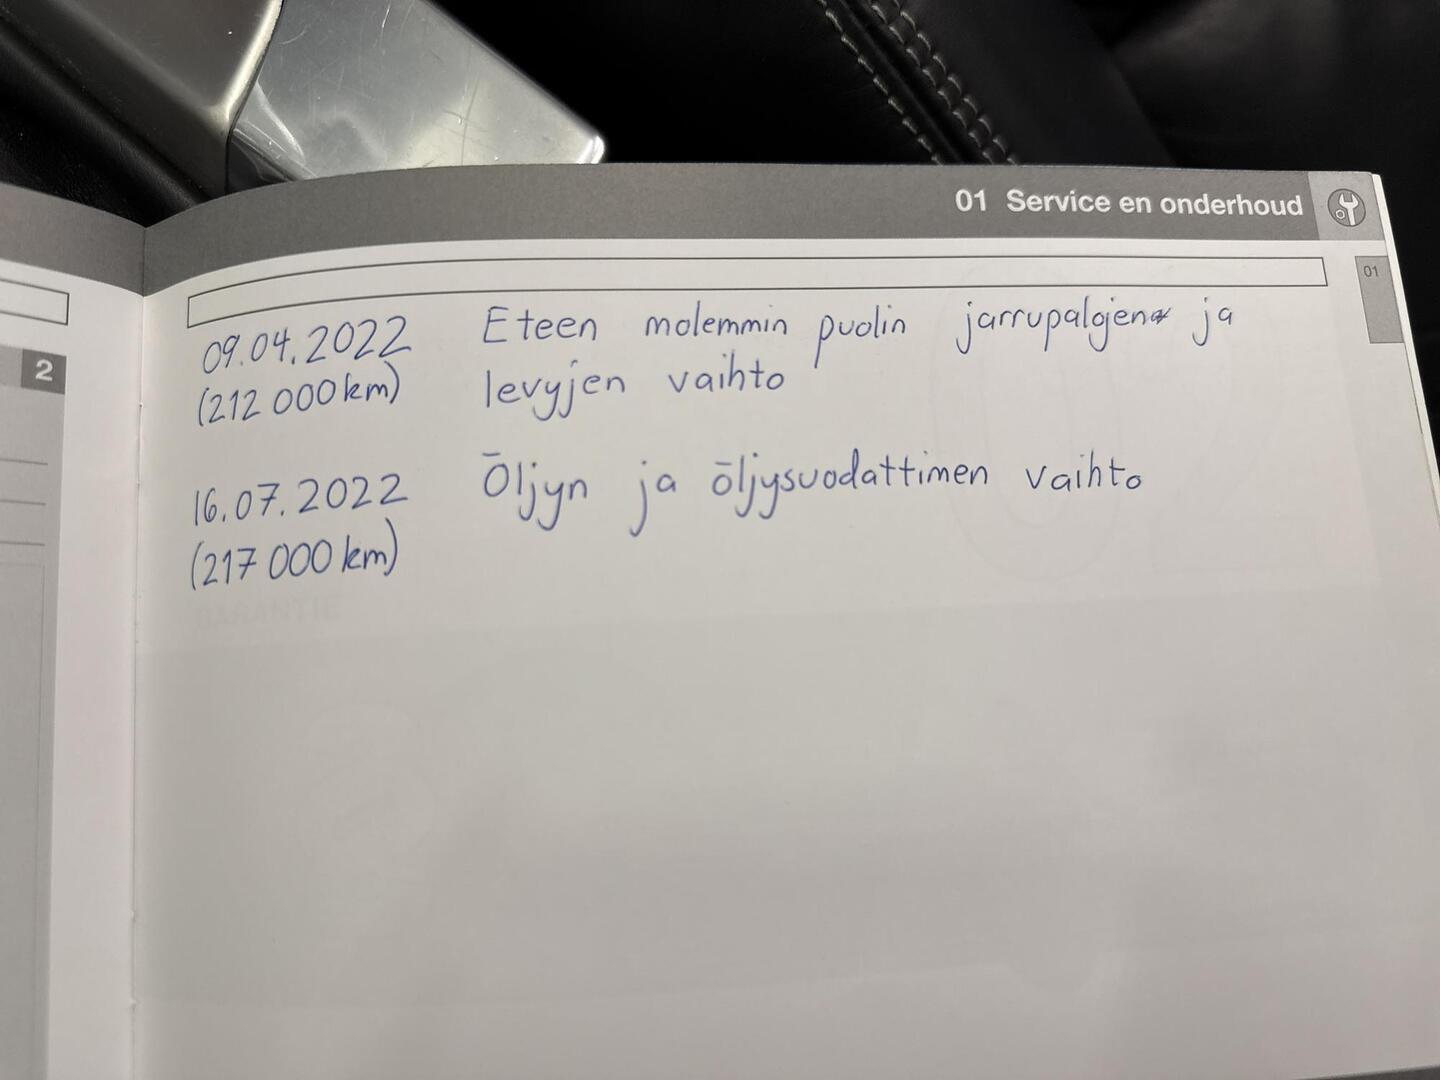 01 Service en onderhoud
01
2
09.04.2022 Eteen molemmin puolin jarrupalojen ja
(212 000 km) levyjen vaihto
16.07.2022 Öljyn ja öljysuodattimen vaihto
(217 000 km)
GARANTIE